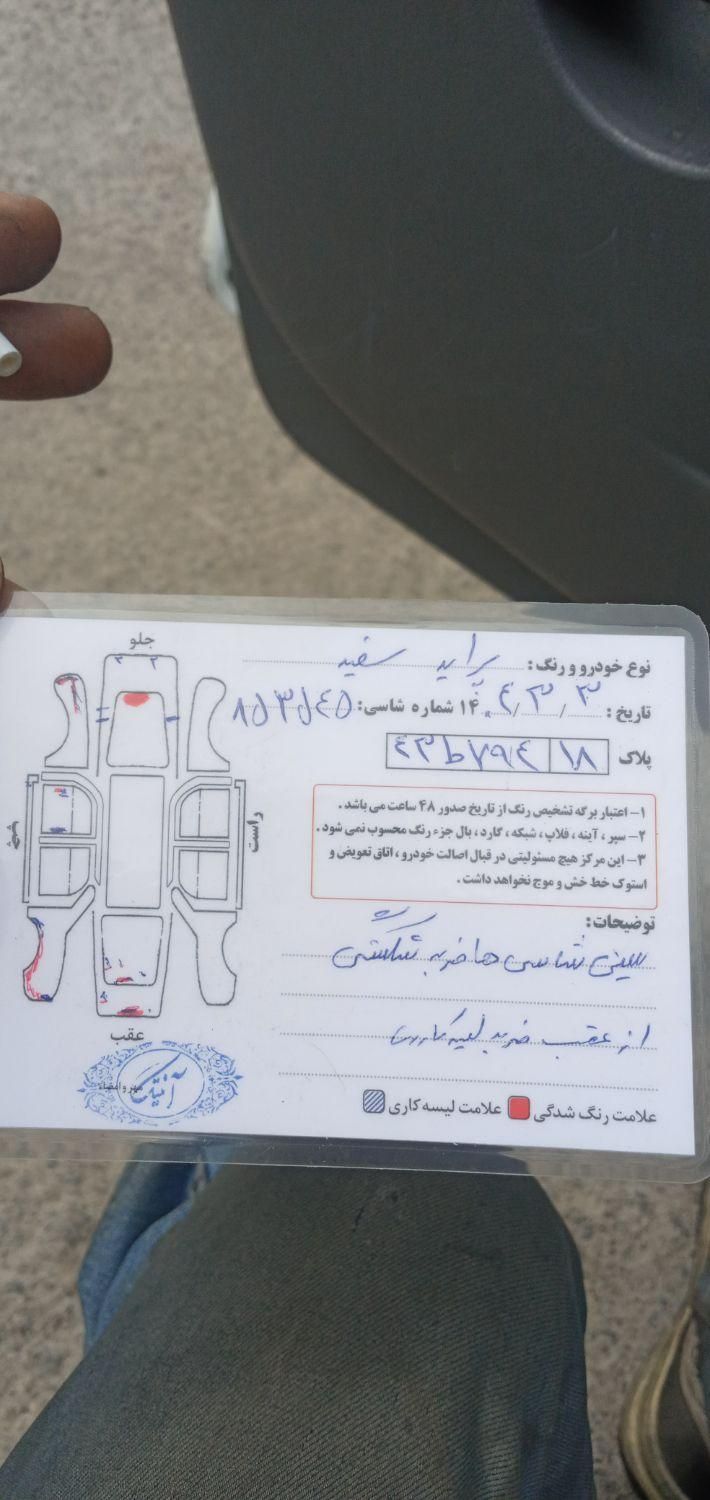 جلو
نوع خودرو و رنگ: پراید سفید
تاریخ: ۱۴۰۴/۳/۳ شماره شاسی:
پلاک ۱۸ ۷۹۴ط۴۳
راست
چپ
۱- اعتبار برگه تشخیص رنگ از تاریخ صدور ۴۸ ساعت می باشد.
۲- سپر، آینه، فلاپ، شبکه، گارد، بال جزء رنگ محسوب نمی شود.
۳- این مرکز هیچ مسئولیتی در قبال اصالت خودرو، اتاق تعویض و
استوک خط خش و موج نخواهد داشت.
توضیحات:
سینی شاسی ها ضربه
از عقب ضربه لیسه کاری
عقب
مهر و امضاء
علامت رنگ شدگی علامت لیسه کاری